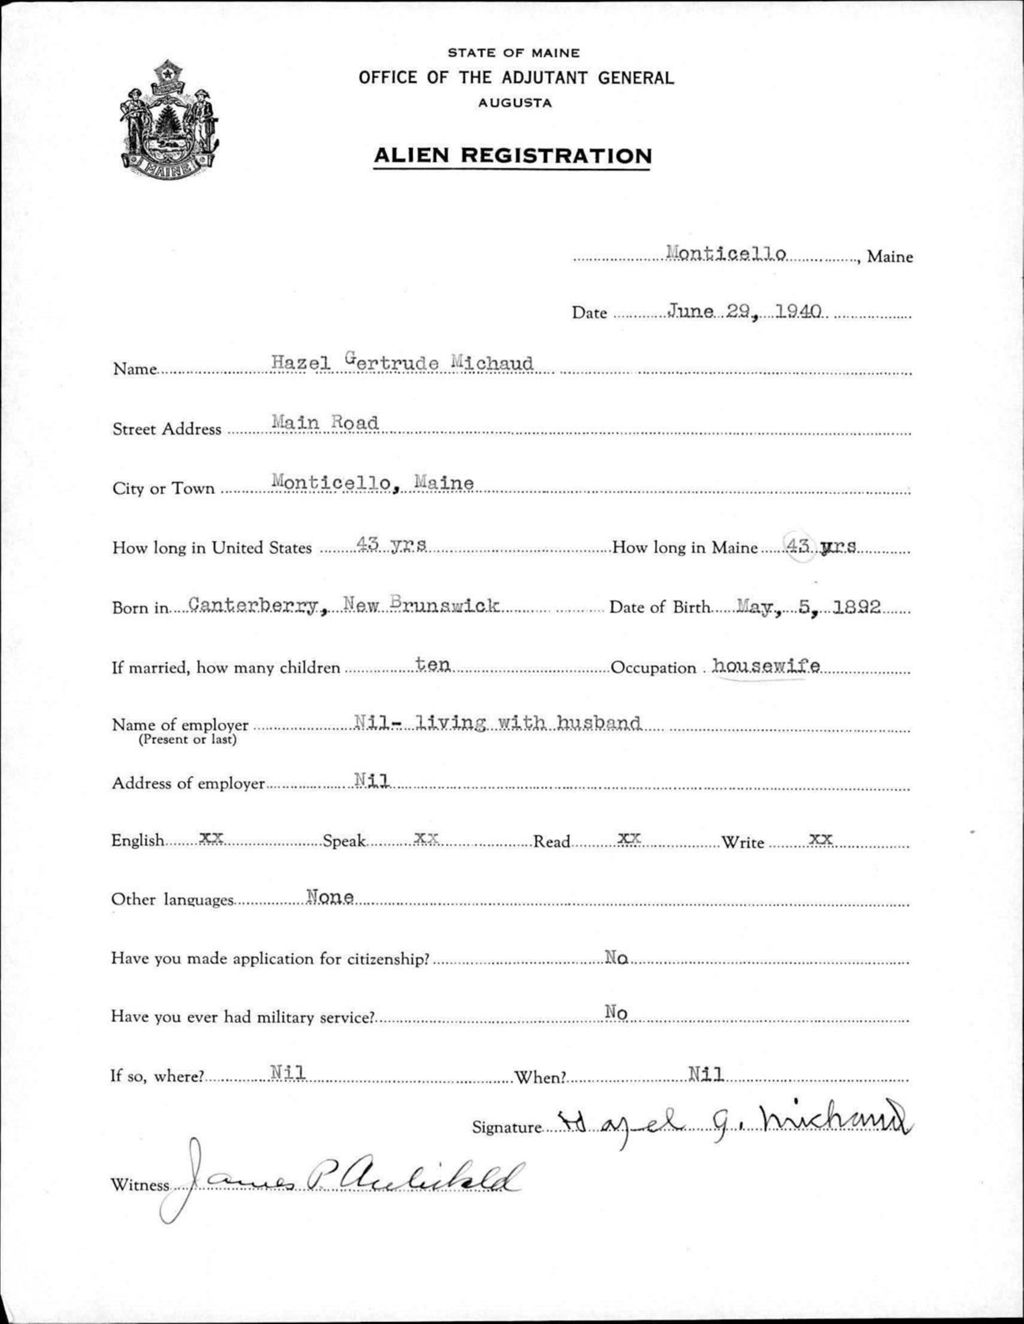 STATE OF MAINE
OFFICE OF THE ADJUTANT GENERAL
AUGUSTA
ALIEN REGISTRATION
MAINE
Monticello, Maine
Date June 29, 1940
Name Hazel Gertrude Michaud
Street Address Main Road
City or Town Monticello, Maine
How long in United States 43 yrs How long in Maine 43 yrs
Born in Canterberry, New Brunswick Date of Birth May, 5, 1892
If married, how many children ten Occupation housewife
Name of employer Nil- living with husband
(Present or last)
Address of employer Nil
English xx Speak xx Read xx Write xx
Other languages None
Have you made application for citizenship? No
Have you ever had military service? No
If so, where? Nil When? Nil
Signature Hazel G. Michaud
Witness James P Archibald